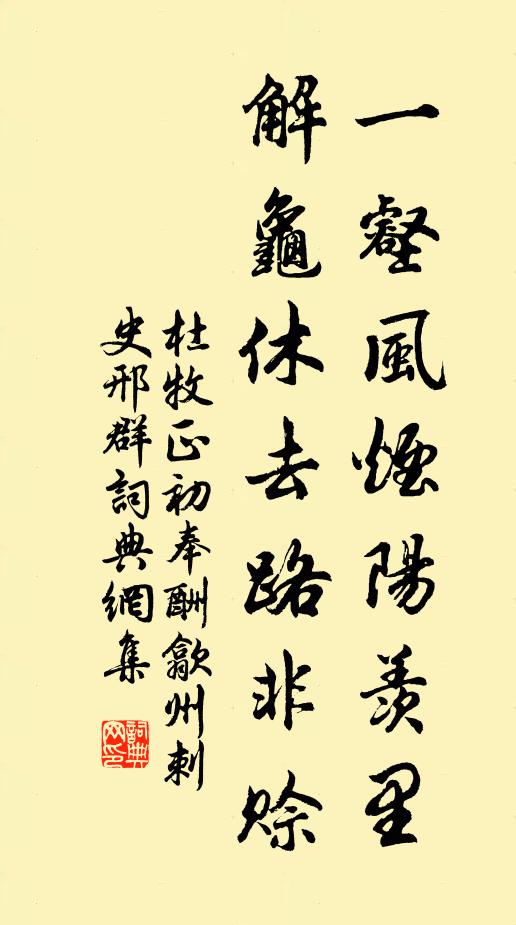 一壑風煙陽羨里
解龜休去路非賒
杜牧正初奉酬歙州刺
史邢群詞典網集
詞典网印